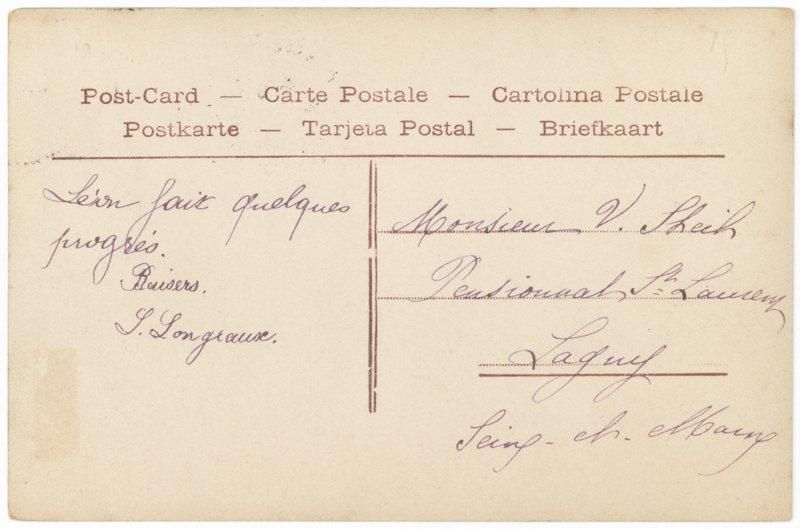 Post-Card — Carte Postale — Cartolina Postale
Postkarte — Tarjeta Postal — Briefkaart
Léon fait quelques
progrès.
Baisers.
S. Longraux.
Monsieur V.
Pensionnat St. Laurent
Lagny
Seine-et-Marne